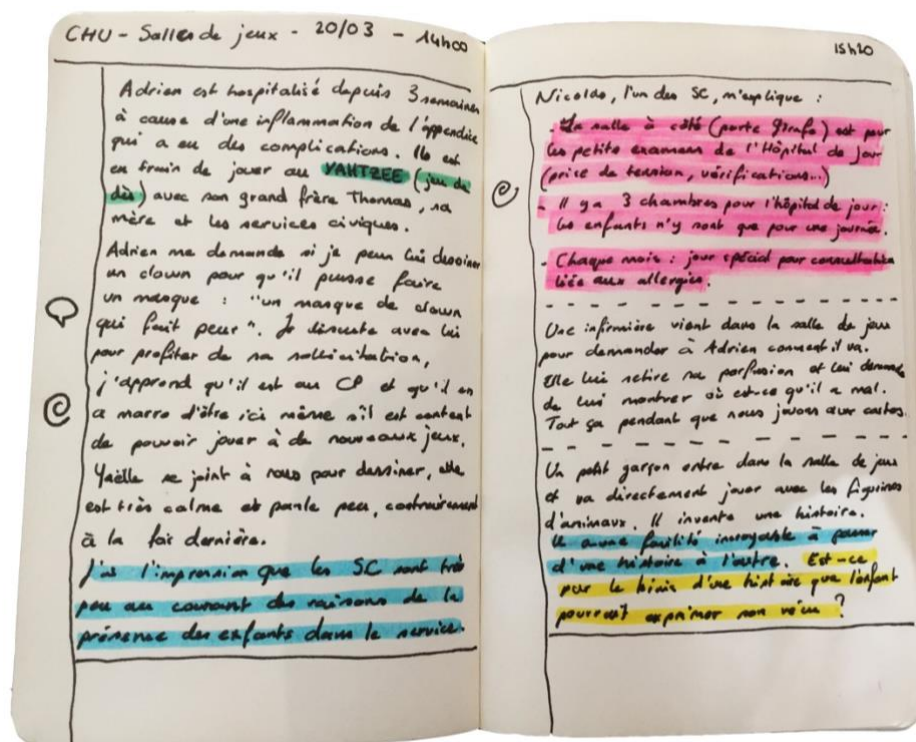 CHU - Salle de jeux - 20/03 - 14h00
Adrien est hospitalisé depuis 3 semaines
à cause d'une inflammation de l'appendice
qui a eu des complications. Ils est
en train de jouer au YAHTZEE (jeu de
dès) avec son grand frère Thomas, sa
mère et les services civiques.
Adrien me demande si je peux lui dessiner
un clown pour qu'il puisse faire
un masque : "un masque de clown
qui fait peur". Je discute avec lui
pour profiter de sa sollicitation,
j'apprend qu'il est au CP et qu'il en
a marre d'être ici même s'il est content
de pouvoir jouer à de nouveaux jeux.
Yaëlle se joint à nous pour dessiner, elle
est très calme et parle peu, contrairement
à la fois dernière.
J'ai l'impression que les SC sont très
peu au courant des raisons de la
présence des enfants dans le service.
15h20
Nicolas, l'un des SC, m'explique :
- La salle à côté (porte Girafe) est pour
les petits examens de l'Hôpital de jour
(prise de tension, vérifications...)
- Il y a 3 chambres pour l'hôpital de jour :
les enfants n'y sont que pour une journée.
- Chaque mois : jour spécial pour consultation
liée aux allergies.
Une infirmière vient dans la salle de jeux
pour demander à Adrien comment il va.
Elle lui retire sa perfusion et lui demande
de lui montrer où est-ce qu'il a mal.
Tout ça pendant que nous jouons aux cartes.
Un petit garçon entre dans la salle de jeux
et va directement jouer avec les figurines
d'animaux. Il invente une histoire.
Il a une facilité incroyable à passer
d'une histoire à l'autre. Est-ce
par le biais d'une histoire que l'enfant
pourrait exprimer son vécu ?